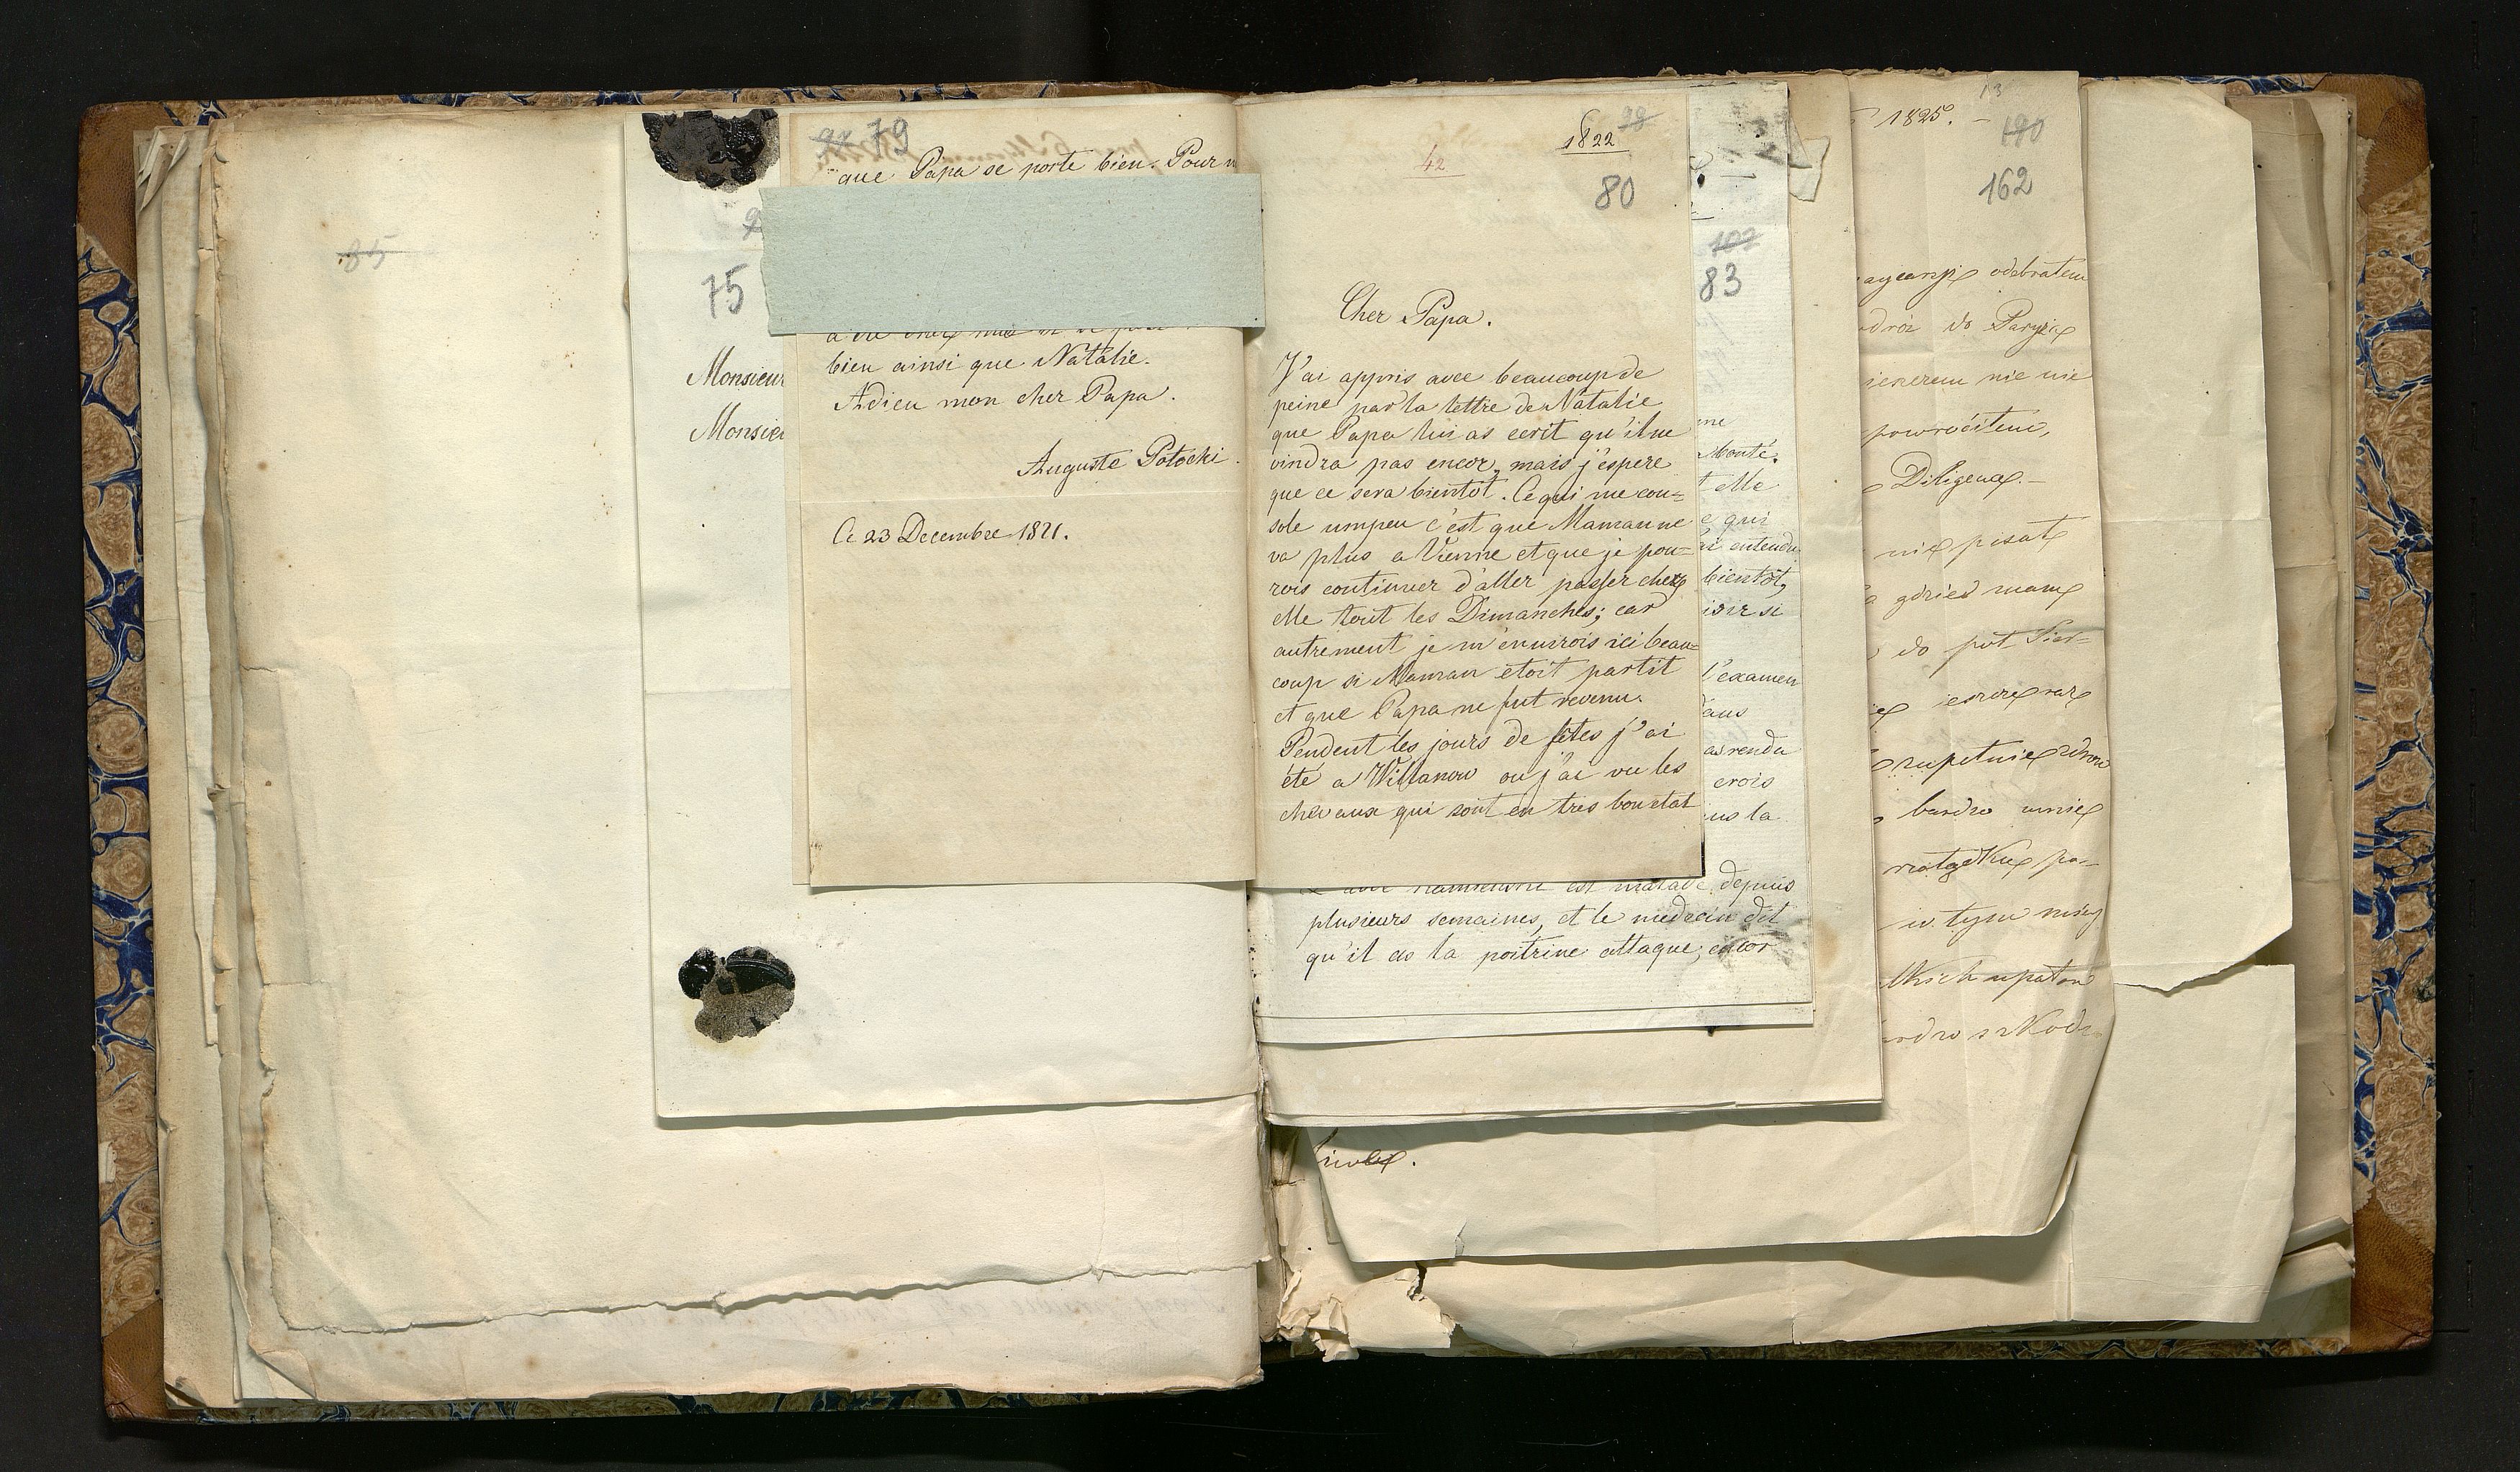 85
75
Monsieur
Monsieu
79
que Papa se porte bien. Pour
bien ainsi que Natalie.
Adieu mon cher Papa.
Auguste Potocki.
Ce 23 Decembre 1821.
98
1822
42
80
Cher Papa.
J'ai appris avec beaucoup de
peine par la lettre de Natalie
que Papa lui as ecrit qu'il ne
vindra pas encor, mais j'espere
que ce sera bientot. Ce qui me con=
sole umpeu c'est que Maman ne
va plus a Vienne et que je pou=
rois continuer d'aller passer chez
elle tout les Dimanches; car
autrement je m'ennuirois ici beau=
coup si Maman etoit partit
et que Papa ne fut revenu.
Pendent les jours de fêtes j'ai
été a Willanow ou j'ai vu les
chevaux qui sont en tres bon etat
102
83
Monté.
t elle
e qui
ai entendu
bientôt,
isir si
l'examen
as rendu
erois
ns la
est malade depuis
plusieurs semaines, et le medecin dit
qu'il as la poitrine attaque, encor
13
1825. -
190
162
odebrałem
do Paryża
nie nie
powrócitem,
Diligence. -
nie pisał
gdzies mam
do pół
bardzo
w tym